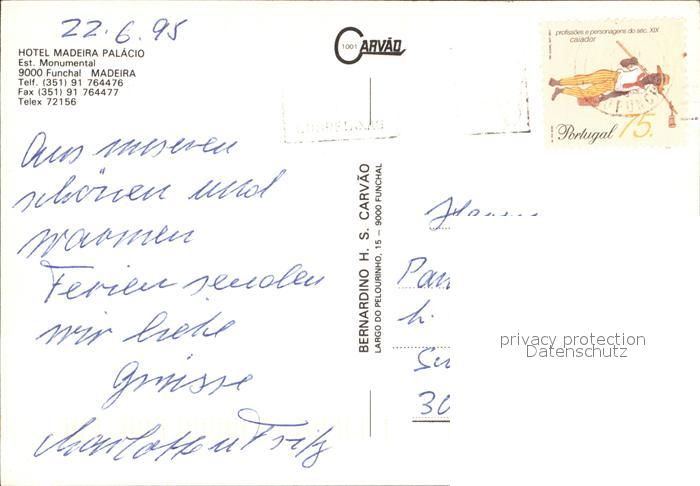 22.6.95
HOTEL MADEIRA PALÁCIO
Est. Monumental
9000 Funchal MADEIRA
Telf. (351) 91 764476
Fax (351) 91 764477
Telex 72156
1001 CARVÃO
profissões e personagens do séc. XIX
caiador
Portugal 75.
Aus unseren
schönen und
warmen
Ferien senden
wir liebe
Grüsse
Charlotte u Fritz
BERNARDINO H. S. CARVÃO
LARGO DO PELOURINHO, 15 – 9000 FUNCHAL
h.
30
privacy protection
Datenschutz